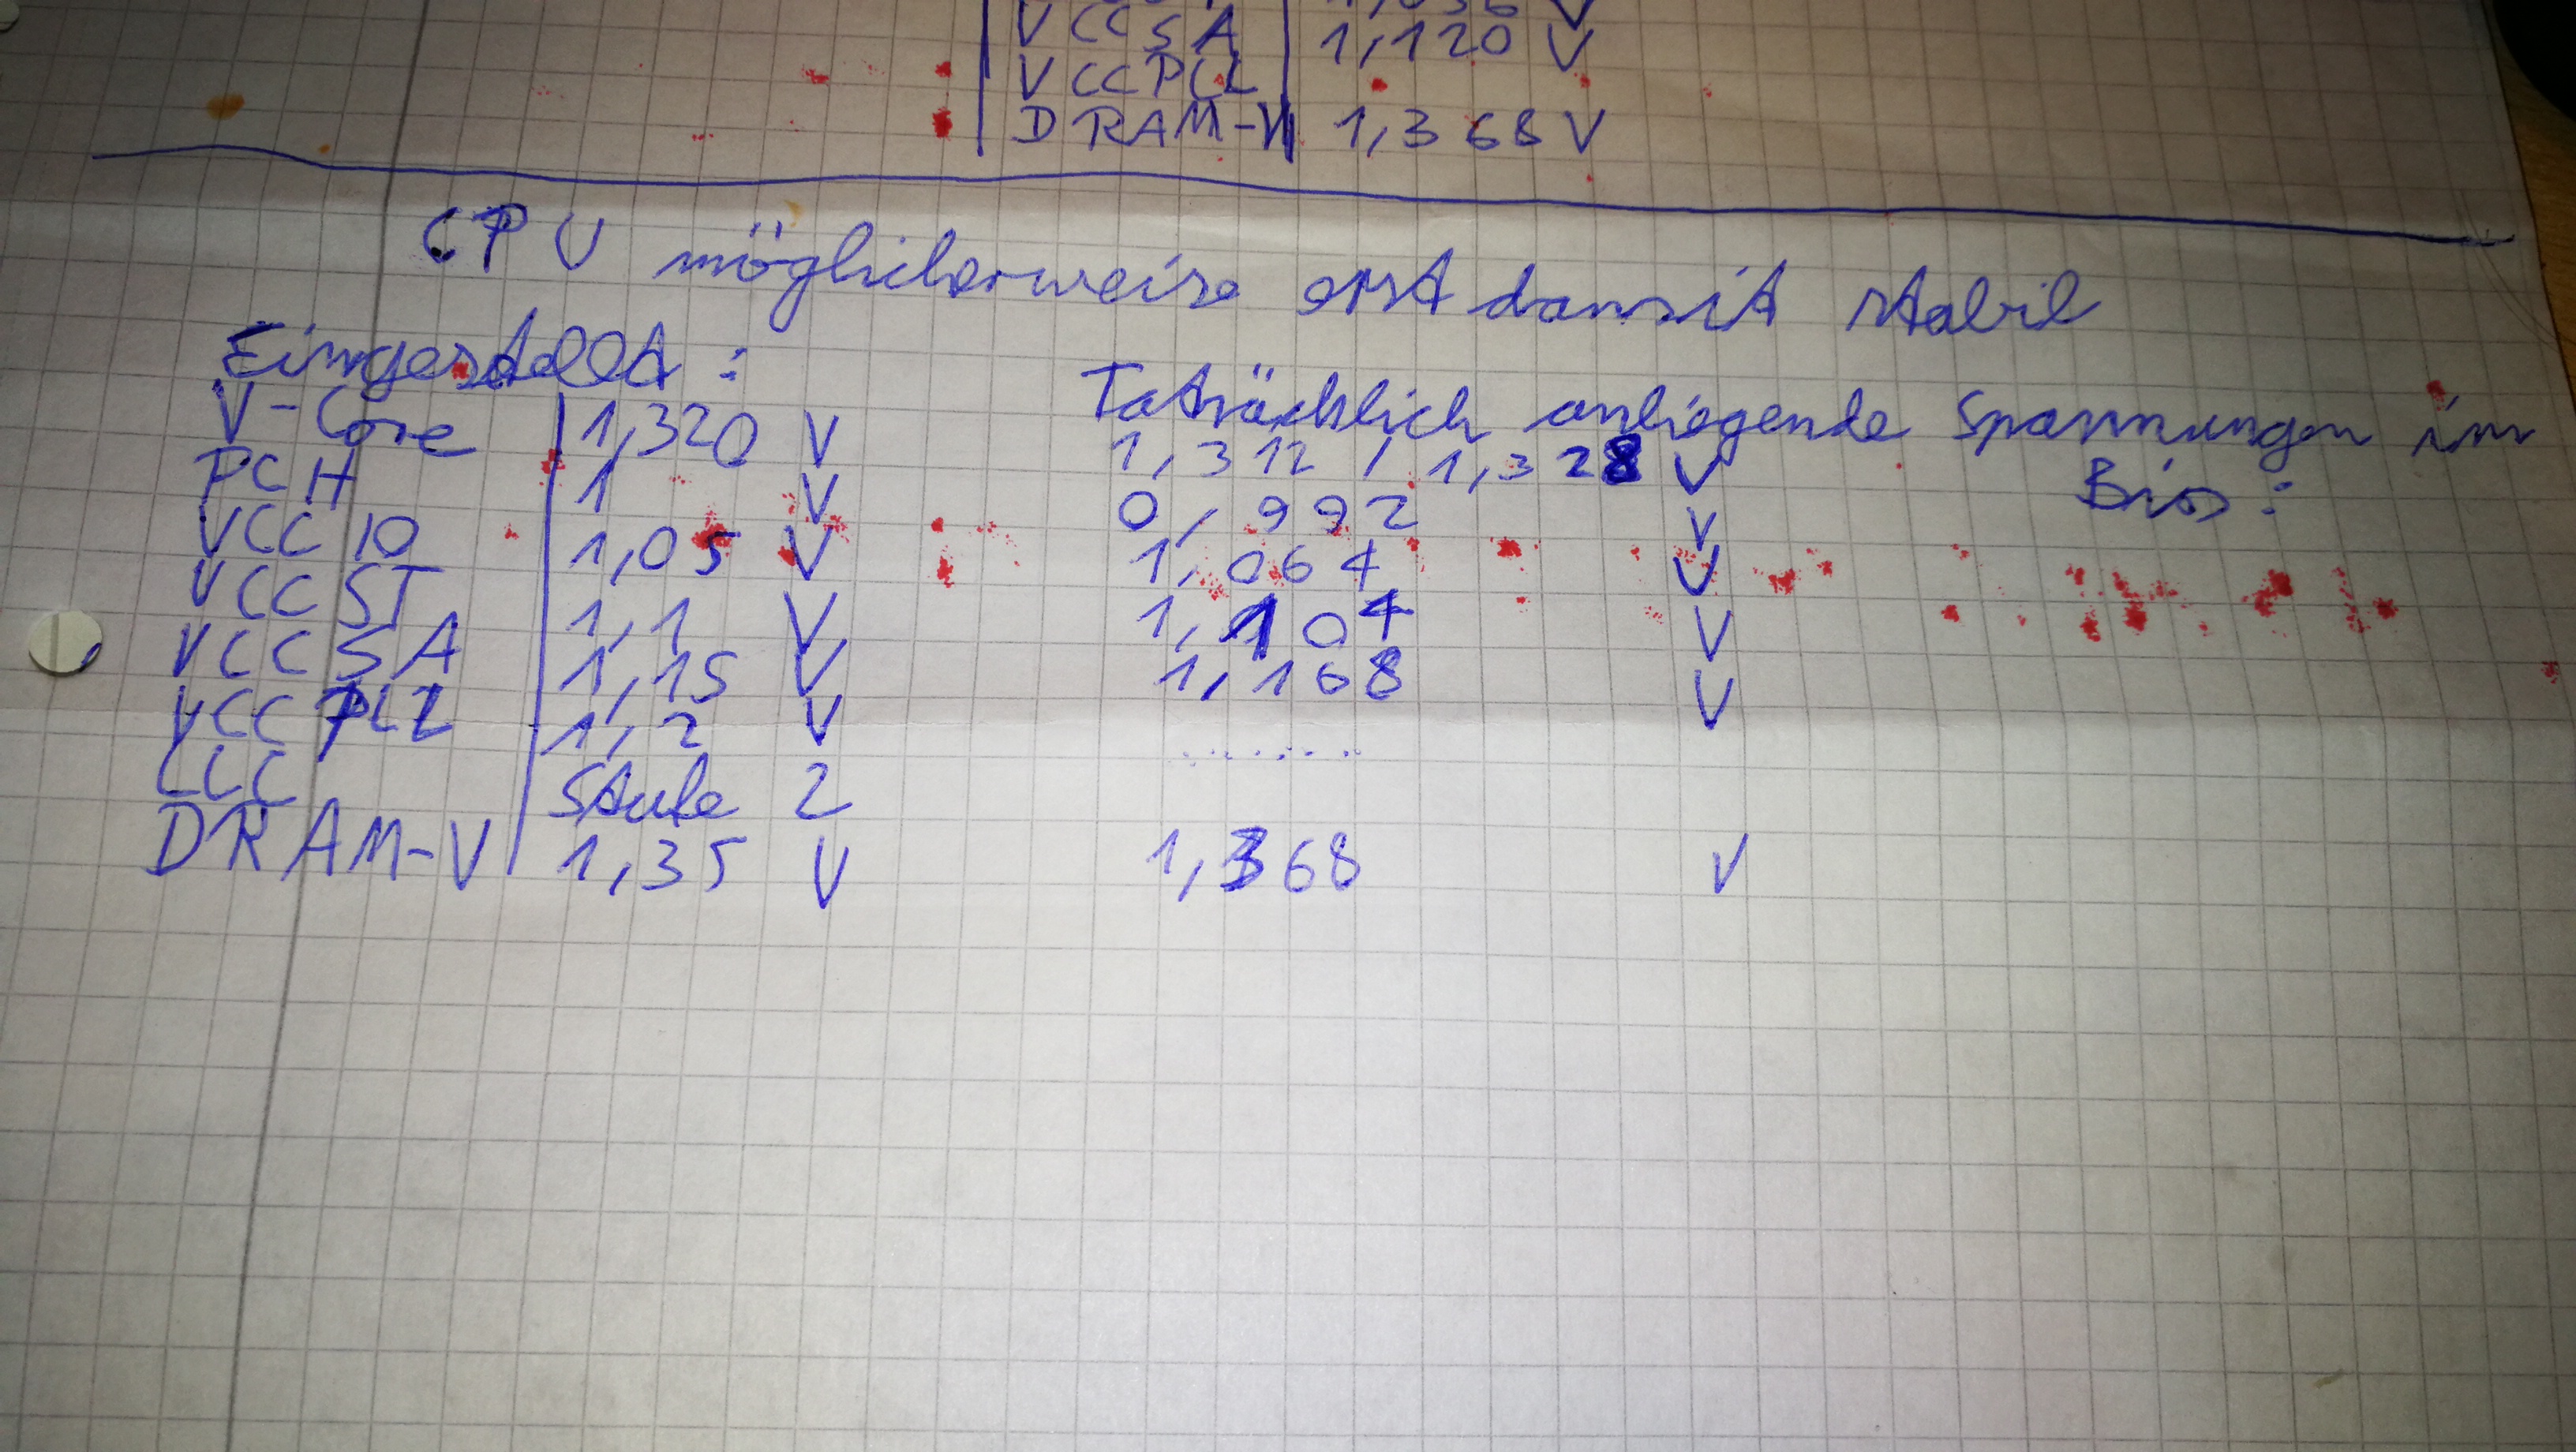 VCCSA 1,120 V
VCCPCL
DRAM-V 1,368 V
CPU möglicherweise erst damit stabil
Eingestellt: Tatsächlich anliegende Spannungen im
Bios:
V-Core 1,320 V 1,312 / 1,328 V
PCH 1 V 0,992 V
VCC IO 1,05 V 1,064 V
VCC ST 1,1 V 1,104 V
VCC SA 1,15 V 1,168 V
VCC PLL 1,2 V .......
LLC Stufe 2
DRAM-V 1,35 V 1,368 V